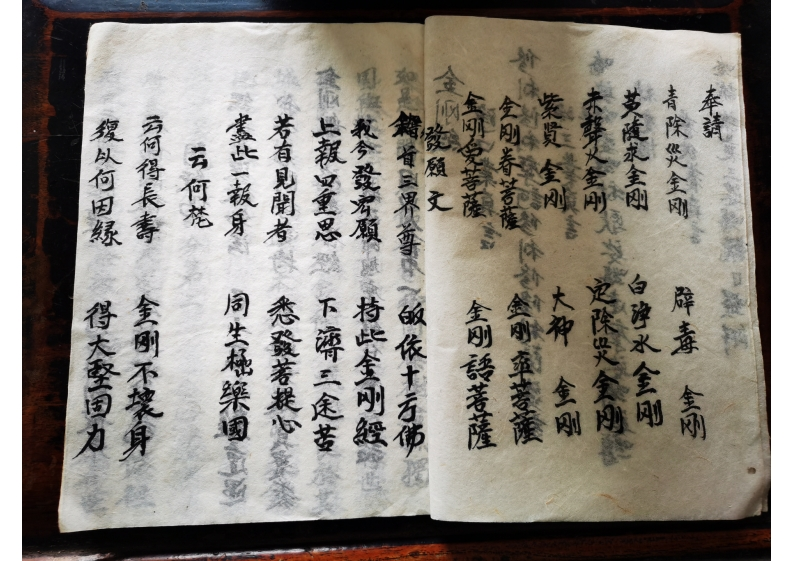 奉請
青除災金剛 辟毒 金剛
黃隨求金剛 白淨水金剛
赤聲火金剛 定除災金剛
紫賢 金剛 大神 金剛
金剛眷菩薩 金剛菩薩
金剛愛菩薩 金剛語菩薩
發願文
稽首三界尊 皈依十方佛
我今發宏願 持此金剛經
上報四重恩 下濟三途苦
若有見聞者 悉發菩提心
盡此一報身 同生極樂國
云何梵
云何得長壽 金剛不壞身
復以何因緣 得大堅固力